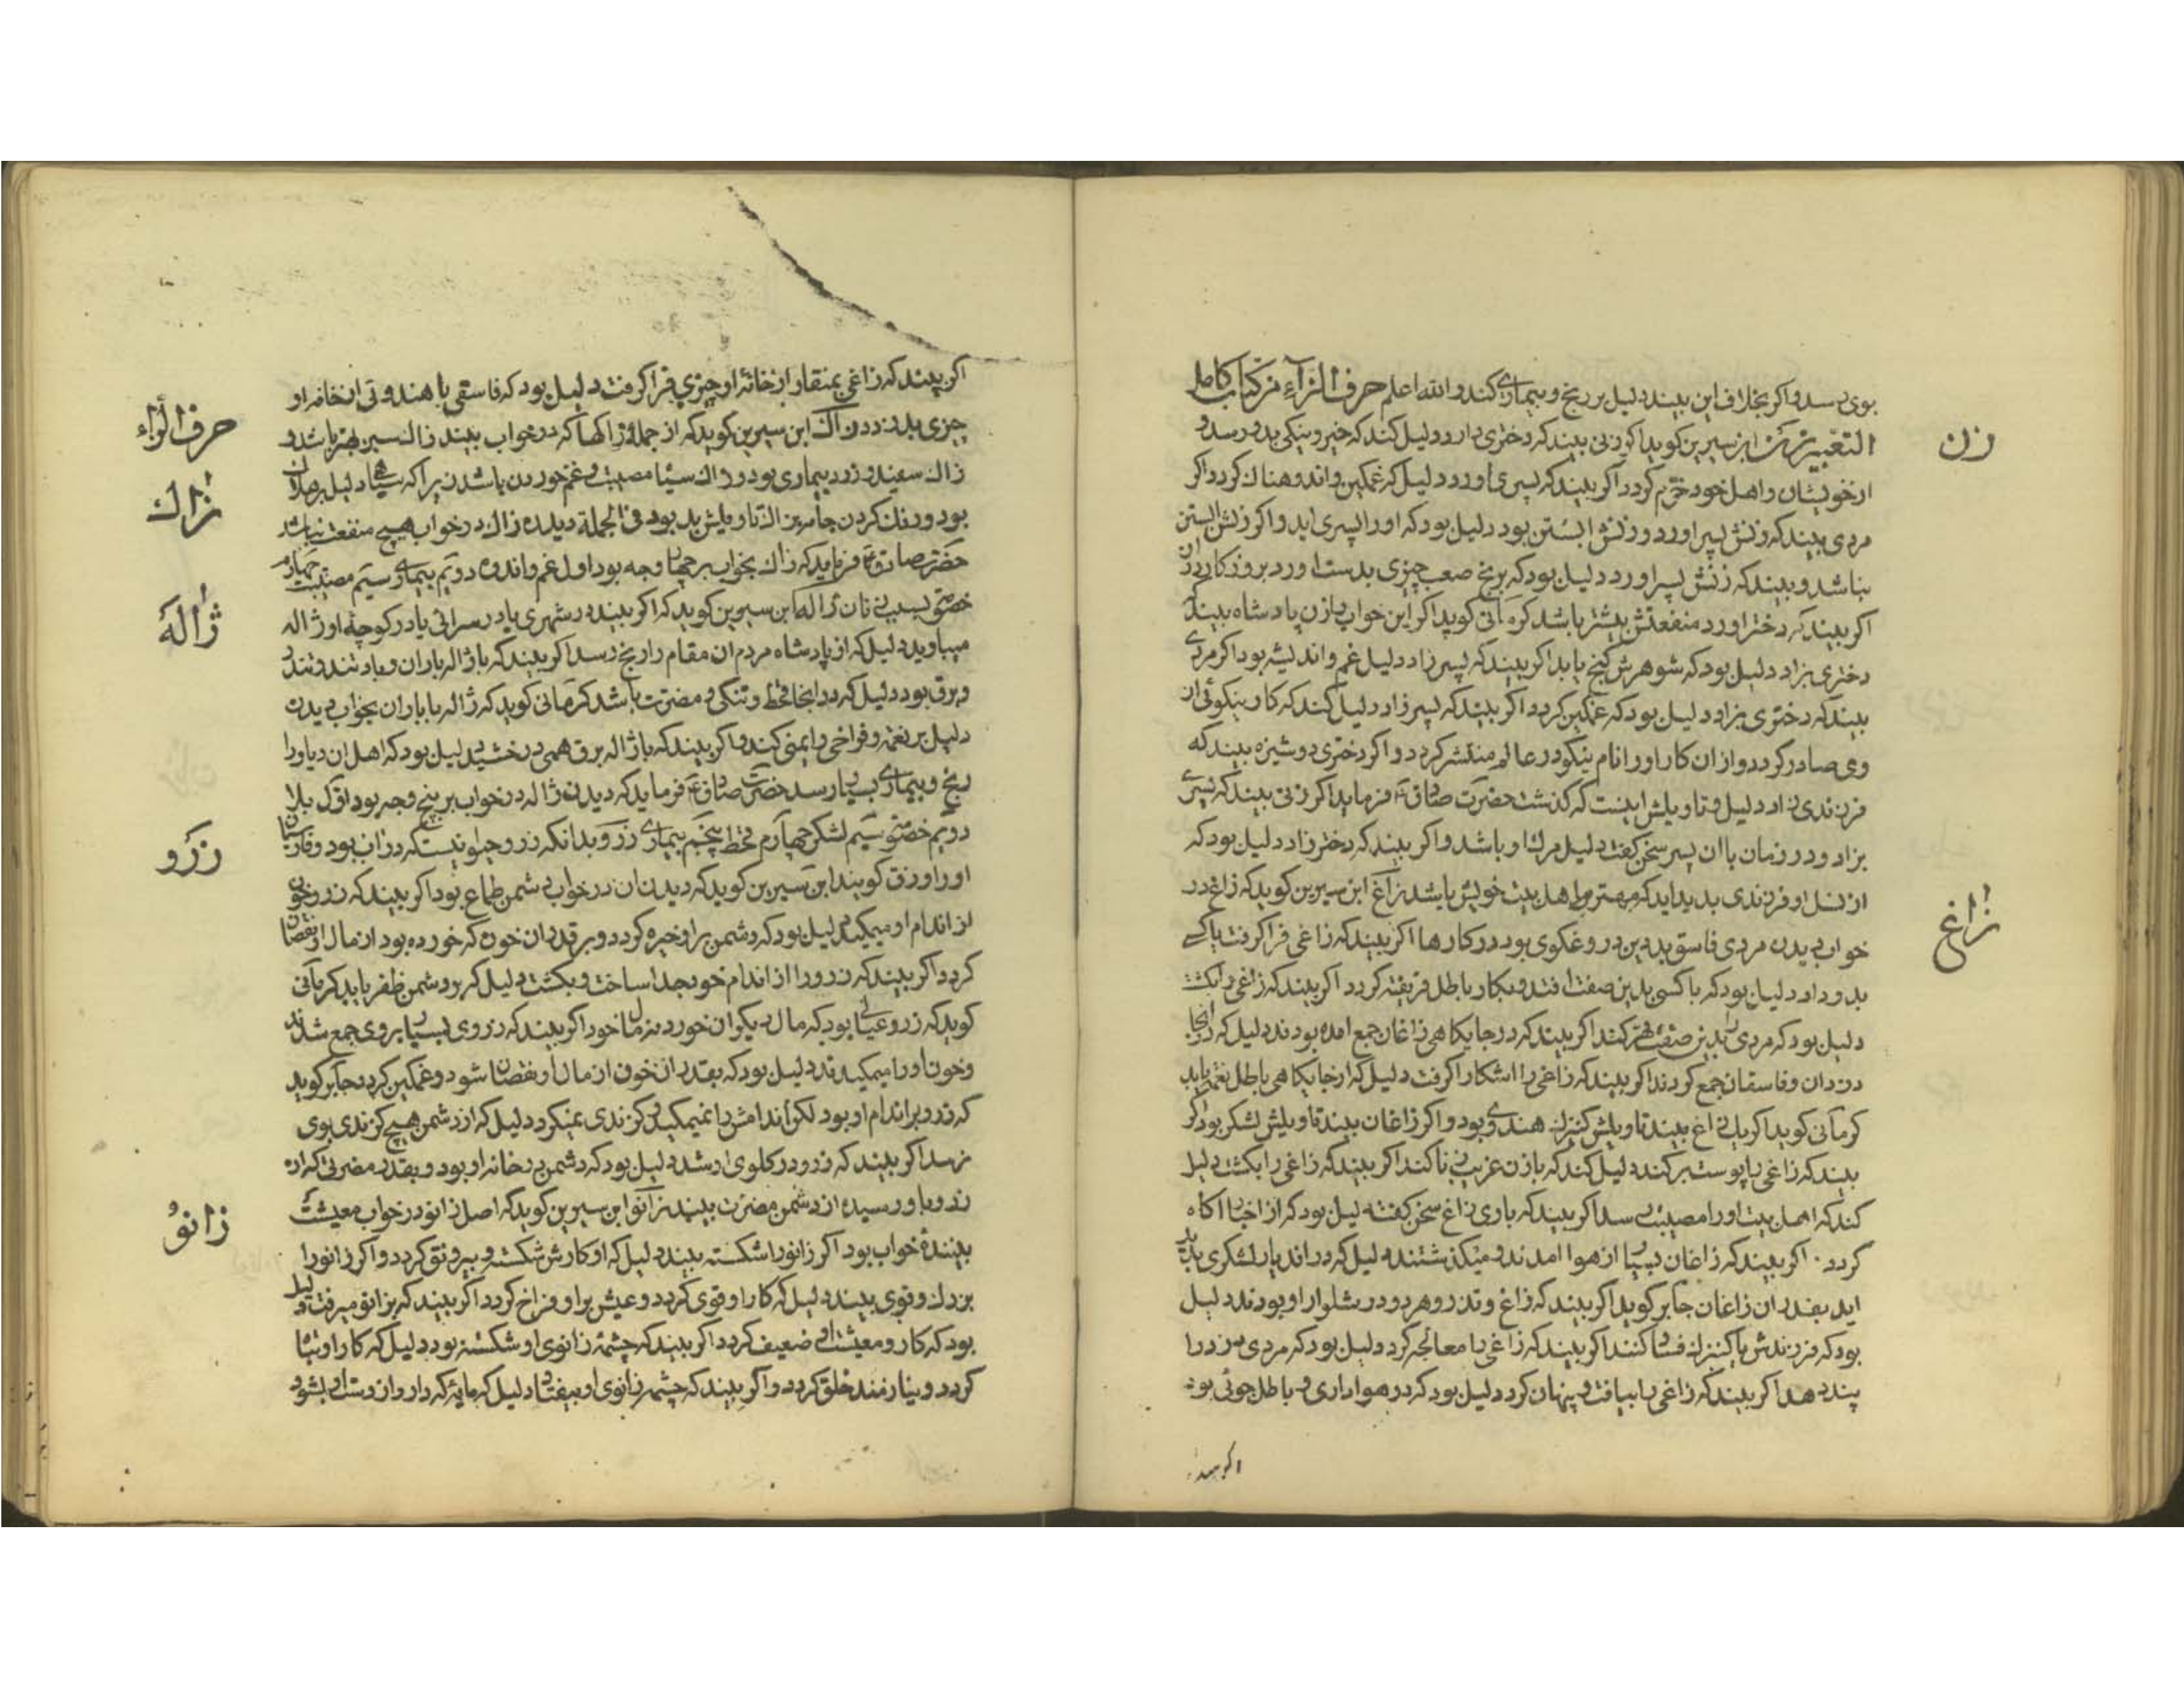 بوی رسد و اگر بخلاف این بیند دلیل بر رنج و بیماری کند والله اعلم حرف الزاء من کتاب کامل
زن
التعبیر زن ابن سیرین کوید اگر زنی بیند که دختری دارد دلیل کند که خیر و نیکی بدو رسد و
از خویشان و اهل خود خرم کردد اکر بیند که پسری اورد دلیل که غمکین و اندوهناک کردد اکر
مردی بیند که زنش پسر اورد و زنش ابستن بود دلیل بود که او را پسری اید و اکر زنش ابستن
نباشد و بیند که زنش پسر اورد دلیل بود که برنج صعب چیزی بدست اورد بروزکار دراز
اکر بیند که دختر اورد منفعتش بیشتر باشد کرمانی کوید اکر این خواب را زن پادشاه بیند که
دختری بزاد دلیل بود که شوهرش کنج یابد اکر بیند که پسر زاد دلیل غم و اندیشه بود اکر مردی
بیند که دختری بزاد دلیل بود که غمکین کردد اکر بیند که پسر زاد دلیل کند که کار نیکوئی از
وی صادر کردد و از ان کار او را نام نیکو در عالم منتشر کردد و اکر دختری دوشیزه بیند که
فرزندی زاد دلیل و تاویلش اینست که کذشت حضرت صادق ع فرماید اکر زنی بیند که پسری
بزاد و در زمان با ان پسر سخن کفت دلیل مرک او باشد و اکر بیند که دختر زاد دلیل بود که
از نسل او فرزندی بدید اید که مهتر اهل بیت خویش باشد زاغ ابن سیرین کوید که زاغ در
زاغ
خواب دیدن مردی فاسق بددین دروغکوی بود در کارها اکر بیند که زاغی فرا کرفت یا کسی
بدو داد دلیل بود که با کسی بدین صفت افتد و بکار باطل فریفته کردد اکر بیند که زاغی را بکشت
دلیل بود که مردی بدین صفت قهر کند اکر بیند که در جایکاهی زاغان جمع امده بودند دلیل که در انجا
دزدان و فاسقان جمع کردند اکر بیند که زاغی را اشکار کرفت دلیل که از جایکاهی باطل نعمت یابد
کرمانی کوید اکر یک زاغ بیند تاویلش کنیزک هندوی بود و اکر زاغان بیند تاویلش لشکر بود اکر
بیند که زاغی را پوست برکند دلیل کند که با زن غریب زنا کند اکر بیند که زاغی را بکشت دلیل
کند که اهل بیت او را مصیبت رسد اکر بیند که با وی زاغ سخن کفت دلیل بود که از اخبار اکاه
کردد اکر بیند که زاغان بسیار از هوا امدند و میکذشتند دلیل که در ان دیار لشکری پدید
اید بقدر ان زاغان جابر کوید اکر بیند که زاغ و تذرو هر دو در شلوار او بودند دلیل
بود که فرزندش با کنیزک فساد کند اکر بیند که زاغی را معالجه کرد دلیل بود که مردی دزد را
پند دهد اکر بیند که زاغی را بیافت و پنهان کرد دلیل بود که در هواداری و باطل جوئی بود
اکر بیند
اکر بیند که زاغی بمنقار از خانه او چیزی فرا کرفت دلیل بود که فاسقی یا هندوئی از خانه او
حرف الزاء
چیزی بدزدد زاک ابن سیرین کوید که از جمله زاکها که در خواب بیند زاک سبز بهتر باشد و
زاک
زاک سفید و زرد بیماری بود و زاک سیاه مصیبت و غم خوردن باشد زیرا که سیاهی دلیل بر
بود و رنک کردن جامه بزاک تاویلش بد بود فی الجمله دیدن زاک در خواب هیچ منفعت نباشد
حضرت صادق ع فرماید که زاک بخواب بر چهار وجه بود اول غم و اندوه دویم بیماری سیم مصیبت چهارم
خصومت بسبب زنان ژاله ابن سیرین کوید که اکر بیند در شهری یا در سرائی یا در کوچه او ژاله
ژاله
میبارید دلیل که از پادشاه مردم ان مقام را رنج رسد اکر بیند که با ژاله باران و باد تند و تندر
و برق بود دلیل که در انجا قحط و تنکی و مضرت باشد کرمانی کوید که ژاله با باران بخواب دیدن
دلیل بر نعمت و فراخی و ایمنی کند و اکر بیند که با ژاله برق همی درخشید دلیل بود که اهل ان دیار را
رنج و بیماری بسیار رسد حضرت صادق ع فرماید که دیدن ژاله در خواب بر پنج وجه بود اول بلا
دویم خصومت سیم لشکر چهارم قحط پنجم بیماری زرو بدانکه زرو حیوانیست که در اب بود و فارسیان
زرو
او را زرق کویند ابن سیرین کوید که دیدن ان در خواب دشمن طماع بود اکر بیند که زرو خون
از اندام او میمکید دلیل بود که دشمن بر او خیره کردد و بر قدر ان خون که خورده بود از مال او نقصان
کردد اکر بیند که زرو را از اندام خود جدا ساخت و بکشت دلیل که بر دشمن ظفر یابد کرمانی
کوید که زرو عیالی بود که مال دیکران خورد نه مال خود اکر بیند که زروی بسیار بر وی جمع شدند
و خون او را میمکیدند دلیل بود که بقدر ان خون از مال او نقصان شود و غمکین کردد جابر کوید
که زرو بر اندام او بود لکن اندامش را نمیمکید و کزندی نمیکرد دلیل که از دشمن هیچ کزندی بوی
نرسد اکر بیند که زرو در کلوی او شد دلیل بود که دشمن در خانه او بود و بقدر مضرتی که از ان
زرو باو رسیده از دشمن مضرت بیند زانو ابن سیرین کوید که اصل زانو در خواب معیشت
زانو
بیننده خواب بود اکر زانو را شکسته بیند دلیل که او کارش شکسته و بیرونق کردد و اکر زانو را
بزرک و قوی بیند دلیل که کار او قوی کردد و عیش بر او فراخ کردد اکر بیند که بزانو میرفت دلیل
بود که کار و معیشت او ضعیف کردد اکر بیند که چشمه زانوی او شکسته بود دلیل که کار او تباه
کردد و نیازمند خلق کردد و اکر بیند که چشمه زانوی او بیفتاد دلیل که مایه که دارد از دست او بشود